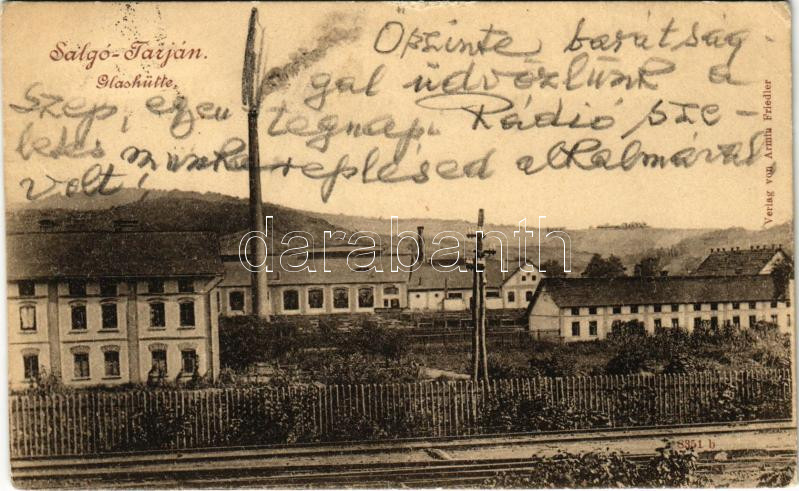 Salgó-Tarján.
Glashütte.
Őszinte barátság-
gal üdvözlünk a
Szép, egen tegnap. Rádió sze-
letes munka replésed alkalmával,
volt!
Verlag von Armin Friedler
darabanth
8351 b